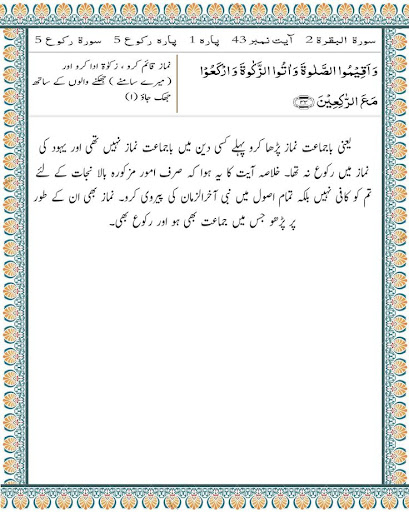 سورة البقرة 2 آیت نمبر 43 پارہ 1 پارہ رکوع 5 سورة رکوع 5
وَاَقِيْمُوا الصَّلٰوةَ وَاٰتُوا الزَّكٰوةَ وَارْكَعُوْا
مَعَ الرّٰكِعِيْنَ ﴿۴۳﴾
نماز قائم کرو ، زکوٰۃ ادا کرو اور
( میرے سامنے ) جھکنے والوں کے ساتھ
جھک جاؤ (۱)
یعنی باجماعت نماز پڑھا کرو پہلے کسی دین میں باجماعت نماز نہیں تھی اور یہود کی
نماز میں رکوع نہ تھا۔ خلاصہ آیت کا یہ ہوا کہ صرف امور مزکورہ بالا نجات کے لئے
تم کو کافی نہیں بلکہ تمام اصول میں نبی آخرالزمان کی پیروی کرو۔ نماز بھی ان کے طور
پر پڑھو جس میں جماعت بھی ہو اور رکوع بھی۔